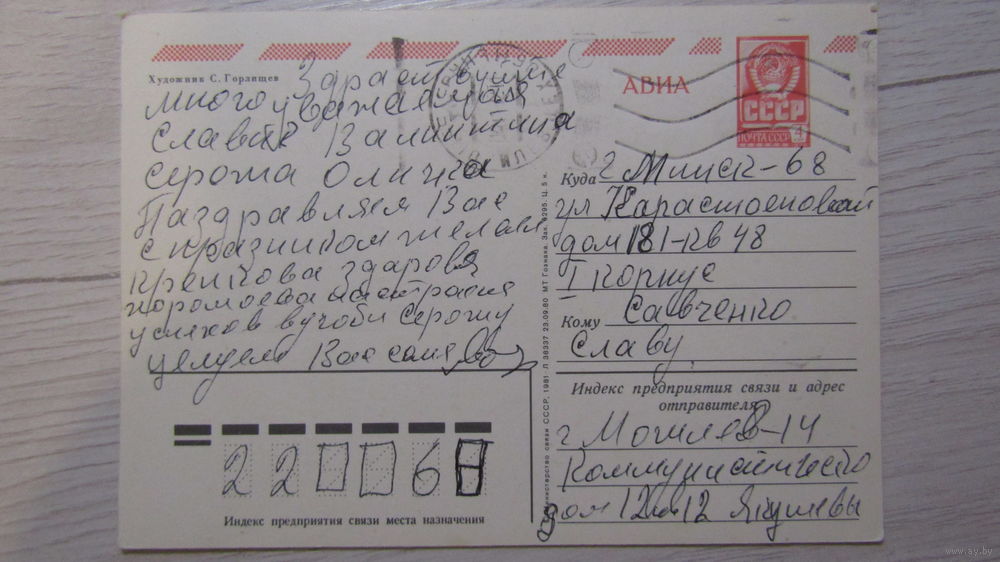 Художник С. Горлищев
Здраствуйте
многоуважаемая
Славик Валинтина
Серожа Оличка
Паздравляем Вас
с празником желаем
крепкова здаровя
хорошоева настраения
успехов вучоби Серожу
целуем Вас всех
АВИА
СССР
ПОЧТА СССР
4
Куда г Минск-68
ул Карастояновай
дом 181-кв 48
I корпус
Кому Савченко
Славу
Индекс предприятия связи и адрес
отправителя
г Могилев-14
Коммунистическо
дом 12 кв 12 Якушевы
220068
Индекс предприятия связи места назначения
Министерство связи СССР, 1981 Л 36337 23.09.80 МТ Гознака. Зак. 6295. Ц. 5 к.
www.ay.by